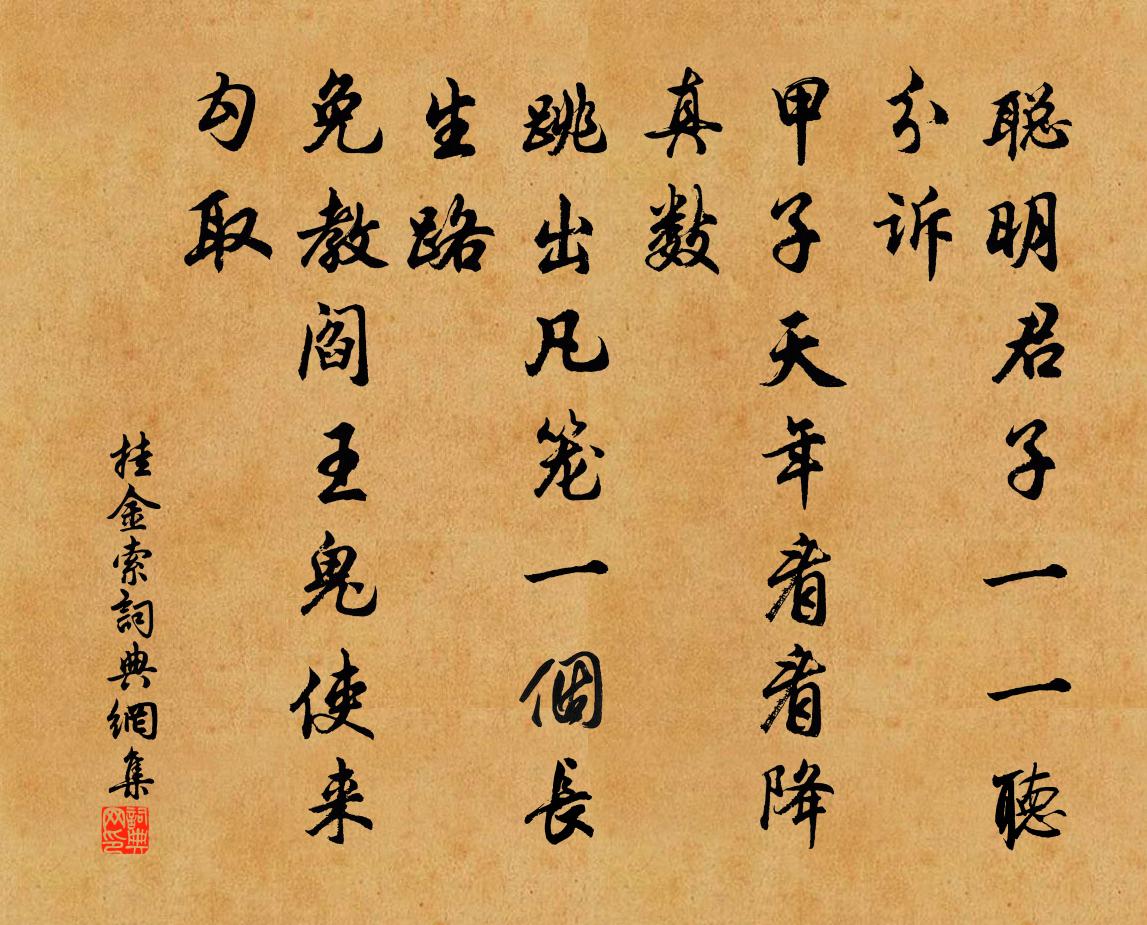 聪明君子一一聽
分诉
甲子天年看看降
真数
跳出凡笼一個長
生路
免教阎王鬼使来
勾取
挂金索詞典網集
詞典网印